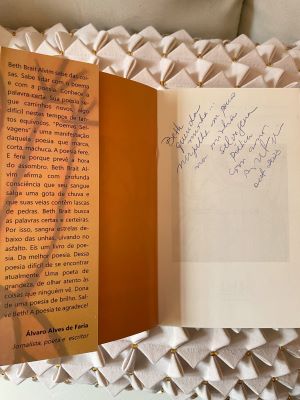 Beth Brait Alvim sabe das coi-
sas. Sabe lidar com o poema
e com a poesia. Conhece a
palavra certa. Sua poesia se-
gue caminhos novos, algo
difícil nestes tempos de tan-
tos equívocos. "Poemas Sel-
vagens" é uma manifestação
daquela poesia que marca,
corta, machuca. A poesia fere.
E fera porque prevê a hora
do assombro. Beth Brait Al-
vim afirma com profunda
consciência que seu sangue
salga uma gota de chuva e
que suas veias contêm lascas
de pedras. Beth Brait busca
as palavras certas e certeiras.
Por isso, sangra estrelas de-
baixo das unhas, uivando no
asfalto. Eis um livro de poe-
sia. Da melhor poesia. Dessa
poesia difícil de se encontrar
atualmente. Uma poeta de
grandeza, de olhar atento às
coisas que ninguém vê. Dona
de uma poesia de brilho. Sal-
ve Beth! A poesia te agradece!
Álvaro Alves de Faria
Jornalista, poeta e escritor
Beth,
querida
na minha
selvagem
com amor